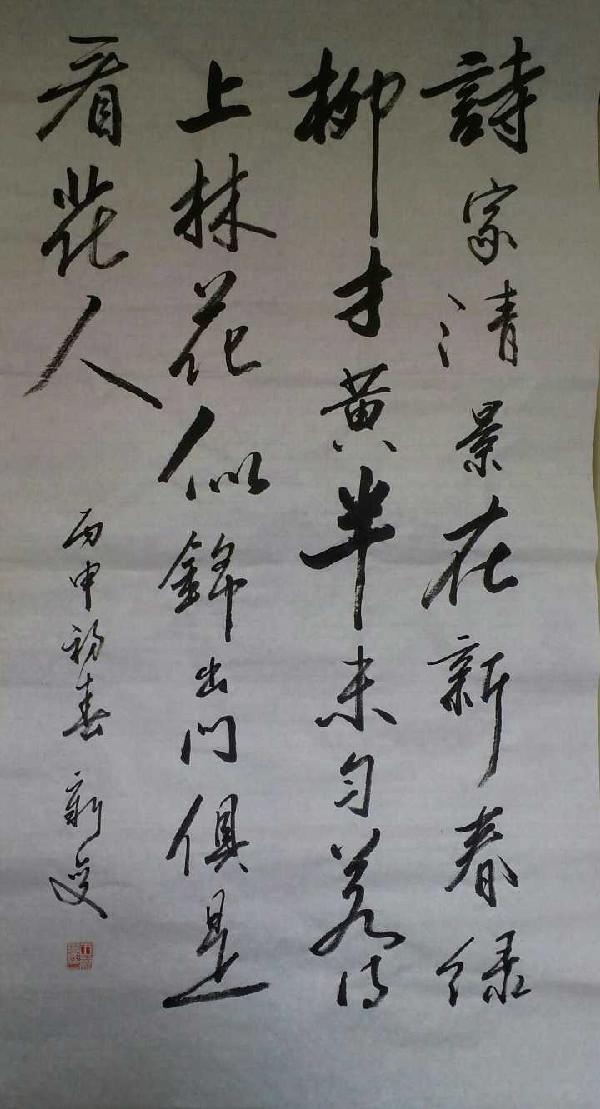 詩家清景在新春綠
柳才黄半未匀若待
上林花似錦出門俱是
看花人
丙申初春 新叟